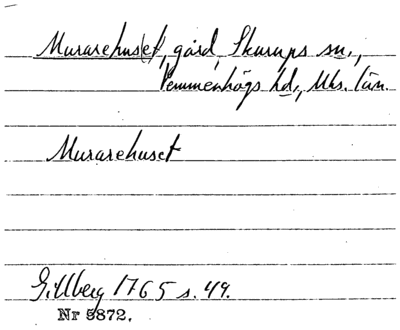 Murarehus(et), gård, Skurups sn.,
Vemmenhögs hd., Mhs. län.
Murarehuset
Gillberg 1765 s. 49.
Nr 5872.